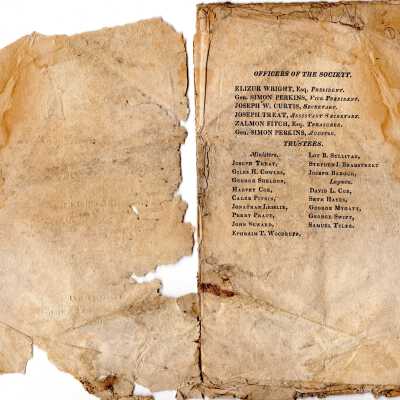 OFFICERS OF THE SOCIETY.
ELIZUR WRIGHT, Esq. President.
Gen. SIMON PERKINS, Vice President.
JOSEPH W. CURTIS, Secretary.
JOSEPH TREAT, Assistant Secretary.
ZALMON FITCH, Esq. Treasurer.
Gen. SIMON PERKINS, Auditor.
TRUSTEES.
Ministers.
Joseph Treat,
Giles H. Cowles,
George Sheldon,
Harvey Coe,
Caleb Pitkin,
Jonathan Leslie,
Perry Pratt,
John Seward,
Ephraim T. Woodruff,
Lot B. Sullivan,
Stephen I. Bradstreet
Joseph
Laymen.
David L. Coe,
Seth Hayes,
George Mygatt,
George Swift,
Samuel